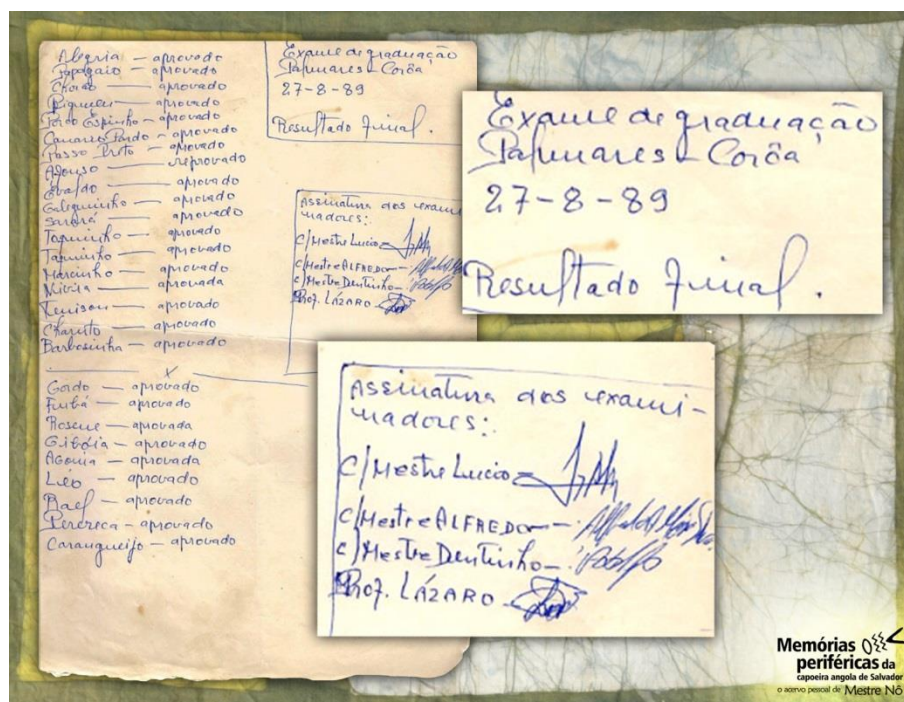 Alegria — aprovado
Papagaio — aprovado
— aprovado
— aprovado
Porco Espinho — aprovado
Canario Pardo — aprovado
Passo Preto — aprovado
Afonso — reprovado
Evaldo — aprovado
Galeguinho — aprovado
Sarará — aprovado
Toquinho — aprovado
— aprovado
Marcinho — aprovado
— aprovada
— aprovado
Charuto — aprovado
Barbosinha — aprovado
X
Gordo — aprovado
— aprovado
Rosene — aprovada
Gibóia — aprovado
Agonia — aprovada
Léo — aprovado
Rael — aprovado
Perereca — aprovado
Carangueijo — aprovado
Exame de graduação
Palmares - Corôa
27-8-89
Resultado Final.
Assinatura dos exami-
nadores:
C/Mestre Lucio
C/Mestre ALFREDO
C/Mestre Dentinho
Prof. LÁZARO
Exame de graduação
Palmares - Corôa
27-8-89
Resultado Final.
Assinatura dos exami-
nadores:
C/Mestre Lucio
C/Mestre ALFREDO
C/Mestre Dentinho
Prof. LÁZARO
Memórias
periféricas da
capoeira angola de Salvador
o acervo pessoal de Mestre Nô